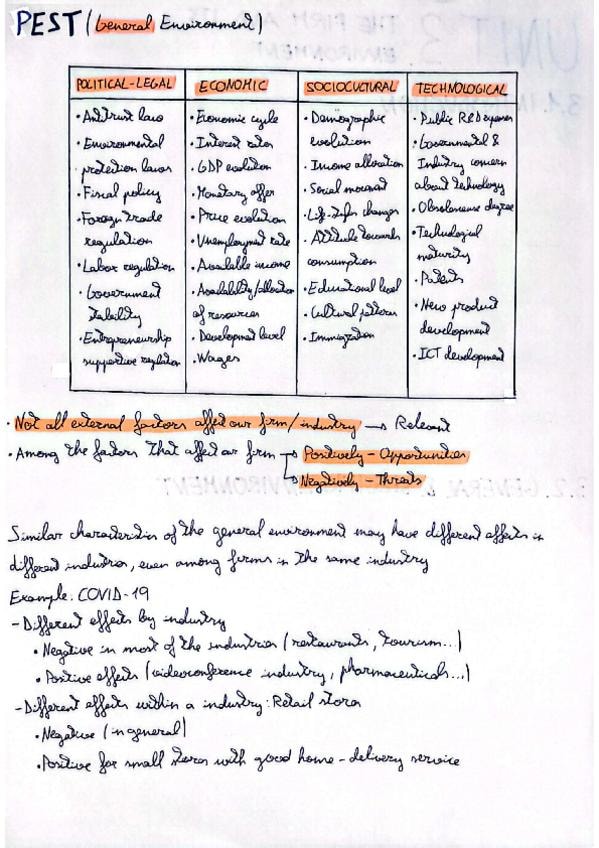 PEST (General Environment)
POLITICAL-LEGAL
• Antitrust laws
• Environmental
protection laws
• Fiscal policy
• Foreign trade
regulation
• Labor regulation
• Government
stability
• Entrepreneurship
supportive regulation
ECONOMIC
• Economic cycle
• Interest rates
• GDP evolution
• Monetary offer
• Price evolution
• Unemployment rate
• Available income
• Availability/allocation
of resources
• Development level
• Wages
SOCIOCULTURAL
• Demographic
evolution
• Income allocation
• Social movement
• Life-Style changes
• Attitude towards
consumption
• Educational level
• Cultural pattern
• Immigration
TECHNOLOGICAL
• Public R&D expenses
• Governmental &
Industry concern
about technology
• Obsolescence degree
• Technological
maturity
• Patents
• New product
development
• ICT development
• Not all external factors affect our firm/industry → Relevant
• Among the factors that affect our firm → Positively - Opportunities
→ Negatively - Threats
Similar characteristics of the general environment may have different effects in
different industries, even among firms in the same industry
Example: COVID-19
- Different effects by industry
• Negative in most of the industries (restaurants, tourism...)
• Positive effects (videoconference industry, pharmaceuticals...)
- Different effects within a industry: Retail stores
• Negative (in general)
• Positive for small stores with good home-delivery service